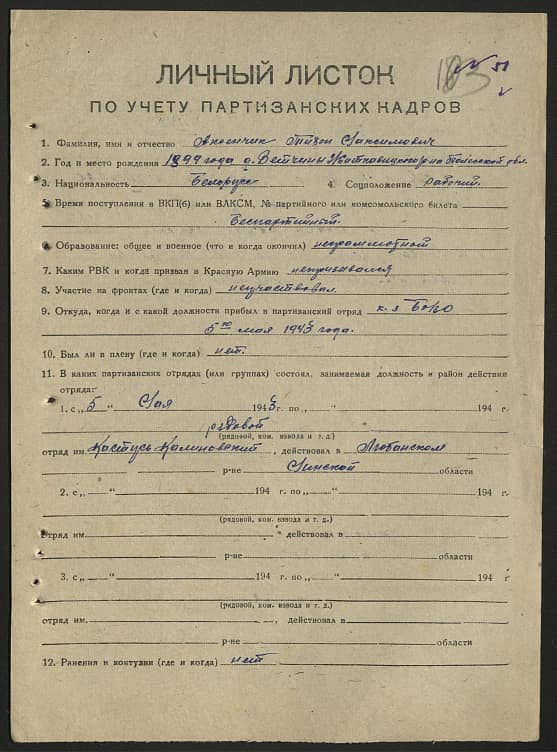 183
ЛИЧНЫЙ ЛИСТОК
ПО УЧЕТУ ПАРТИЗАНСКИХ КАДРОВ
1. Фамилия, имя и отчество Аносичик Тихон Максимович
2. Год и место рождения 1899 года д. Ветчины Житковицкого р-на Полесской обл.
3. Национальность Белорус 4. Соцположение рабочий.
5. Время поступления в ВКП(б) или ВЛКСМ, № партийного или комсомольского билета
Беспартийный.
6. Образование: общее и военное (что и когда окончил) неграмотный
7. Каким РВК и когда призван в Красную Армию непризывался
8. Участие на фронтах (где и когда) неучаствовал.
9. Откуда, когда и с какой должности прибыл в партизанский отряд
5го мая 1943 года.
10. Был ли в плену (где и когда) нет.
11. В каких партизанских отрядах (или группах) состоял, занимаемая должность и район действие
отряда:
1. с „ 5 " Мая 1943 г. по „ " 194 г.
рядовой
(рядовой, ком. взвода и т. д.)
отряд им. Кастусь Калиновский, действовал в Любанском
р-не Минской области
2. с „ " 194 г. по „ " 194 г.
(рядовой, ком. взвода и т. д.)
отряд им. действовал в
р-не области
3. с „ " 194 г. по „ " 194 г
(рядовой, ком. взвода и т. д.)
отряд им. , действовал в
р-не области
12. Ранения и контузии (где и когда) нет